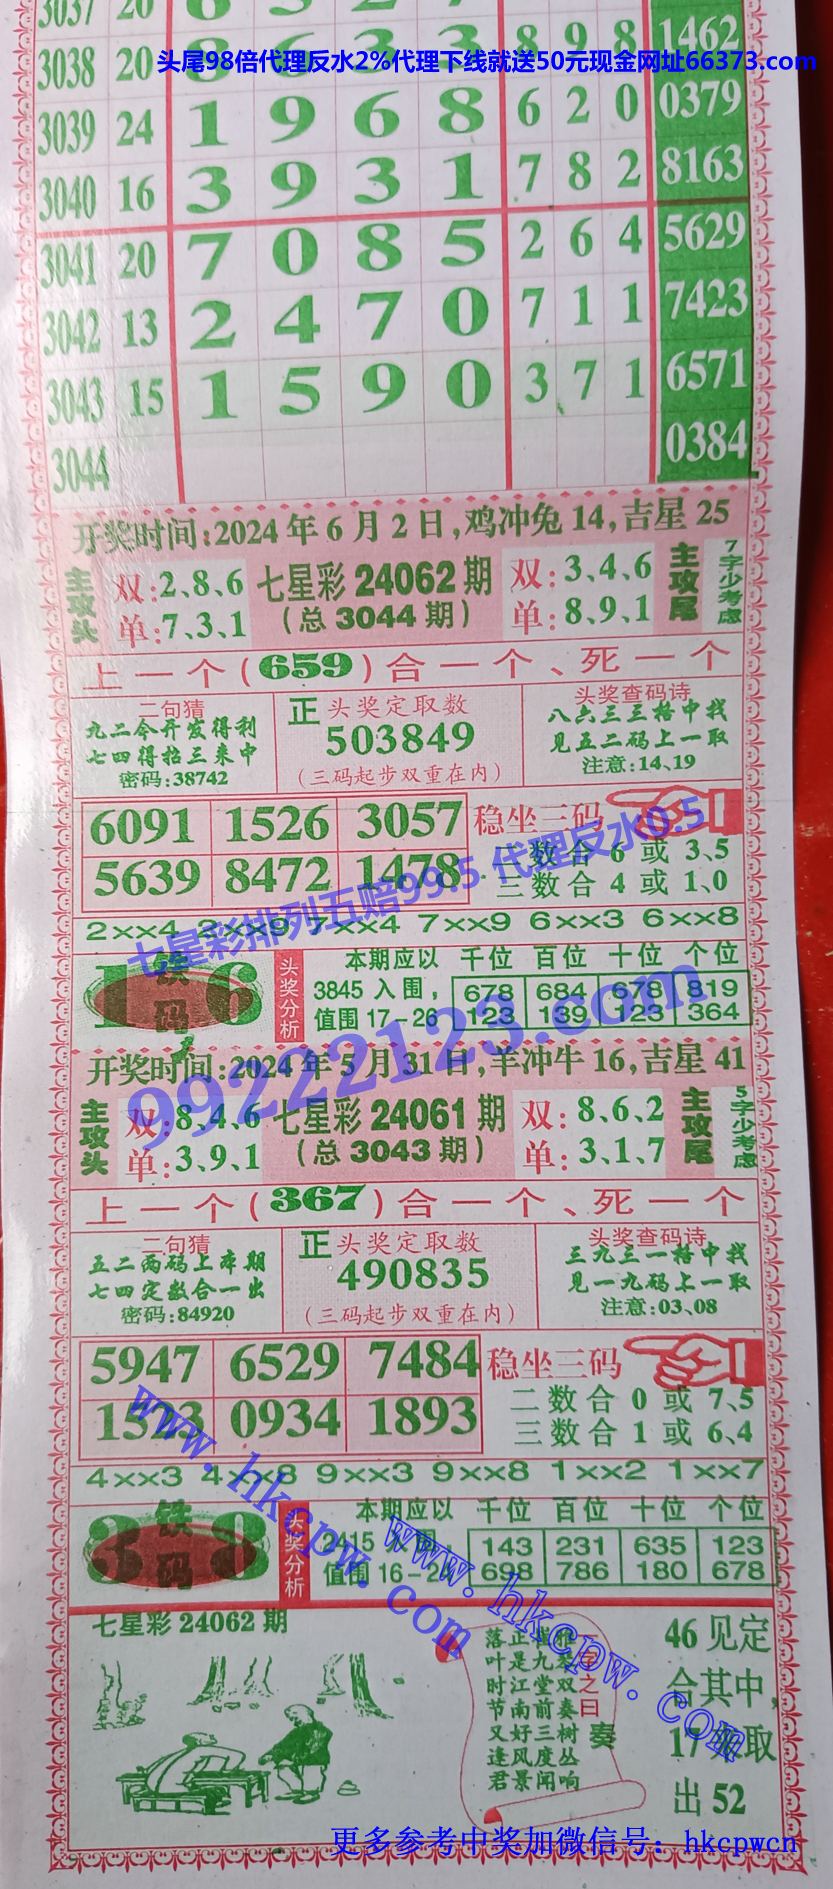 3037 20
头尾98倍代理反水2%代理下线就送50元现金网址66373.com
3038 20 8 6 3 3 8 9 8 1462
3039 24 1 9 6 8 6 2 0 0379
3040 16 3 9 3 1 7 8 2 8163
3041 20 7 0 8 5 2 6 4 5629
3042 13 2 4 7 0 7 1 1 7423
3043 15 1 5 9 0 3 7 1 6571
3044 0384
开奖时间:2024年6月2日,鸡冲兔14,吉星25
主攻头
双:2、8、6
单:7、3、1
七星彩24062期
(总3044期)
双:3、4、6
单:8、9、1
主攻尾
7字少考虑
上一个(659)合一个、死一个
二句猜
九二令开发得利
七四得招三来中
密码:38742
正
头奖定取数
503849
(三码起步双重在内)
头奖查码诗
八六三三格中找
见五二码上一取
注意:14、19
6091 1526 3057
5639 8472 1478
稳坐三码
二数合6或3、5
三数合4或1、0
七星彩排列五赔99.5 代理反水0.5
2××4 2××9 7××4 7××9 6××3 6××8
1 铁码 6
头奖分析
本期应以 千位 百位 十位 个位
3845入围, 678 684 678 819
值围17-26 123 139 123 364
99222123.com
开奖时间:2024年5月31日,羊冲牛16,吉星41
主攻头
双:8、4、6
单:3、9、1
七星彩24061期
(总3043期)
双:8、6、2
单:3、1、7
主攻尾
5字少考虑
上一个(367)合一个、死一个
二句猜
五二两码上本期
七四定数合一出
密码:84920
正
头奖定取数
490835
(三码起步双重在内)
头奖查码诗
三九三一格中找
见一九码上一取
注意:03、08
5947 6529 7484
1523 0934 1893
稳坐三码
二数合0或7、5
三数合1或6、4
4××3 4××8 9××3 9××8 1××2 1××7
3 铁码 8
头奖分析
本期应以 千位 百位 十位 个位
2415入围, 143 231 635 123
值围16-2 698 786 180 678
www.hkcpw.com
www.hkcpw.com
七星彩24062期
一字之曰
奏
双奏树丛响
九堂前三度闻
正是江南好风景
落叶时节又逢君
46见定
合其中,
17 取
出52
更多参考中奖加微信号：hkcpwcn